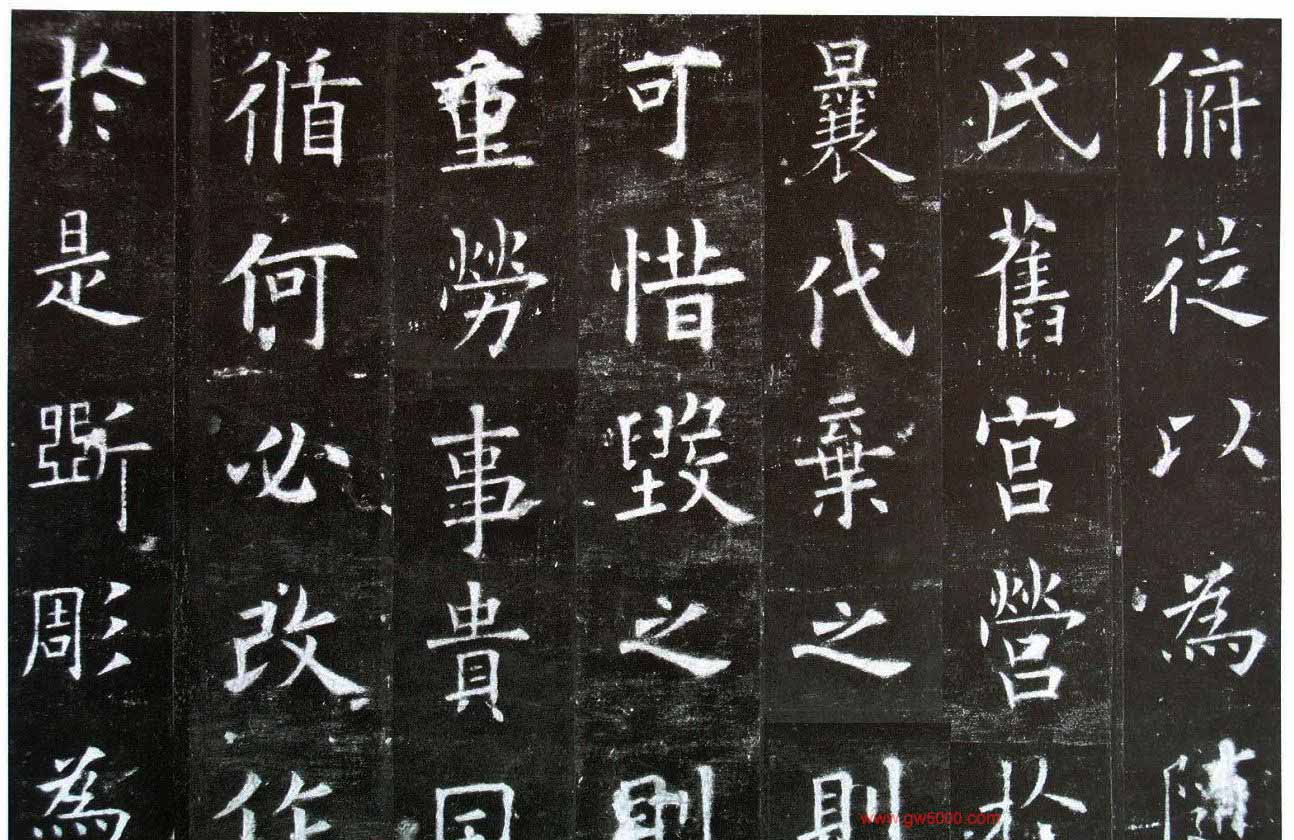 俯從以為隋
氏舊宮營於
曩代棄之則
可惜毀之則
重勞事貴因
循何必改作
於是斲彫為
www.gw5000.com